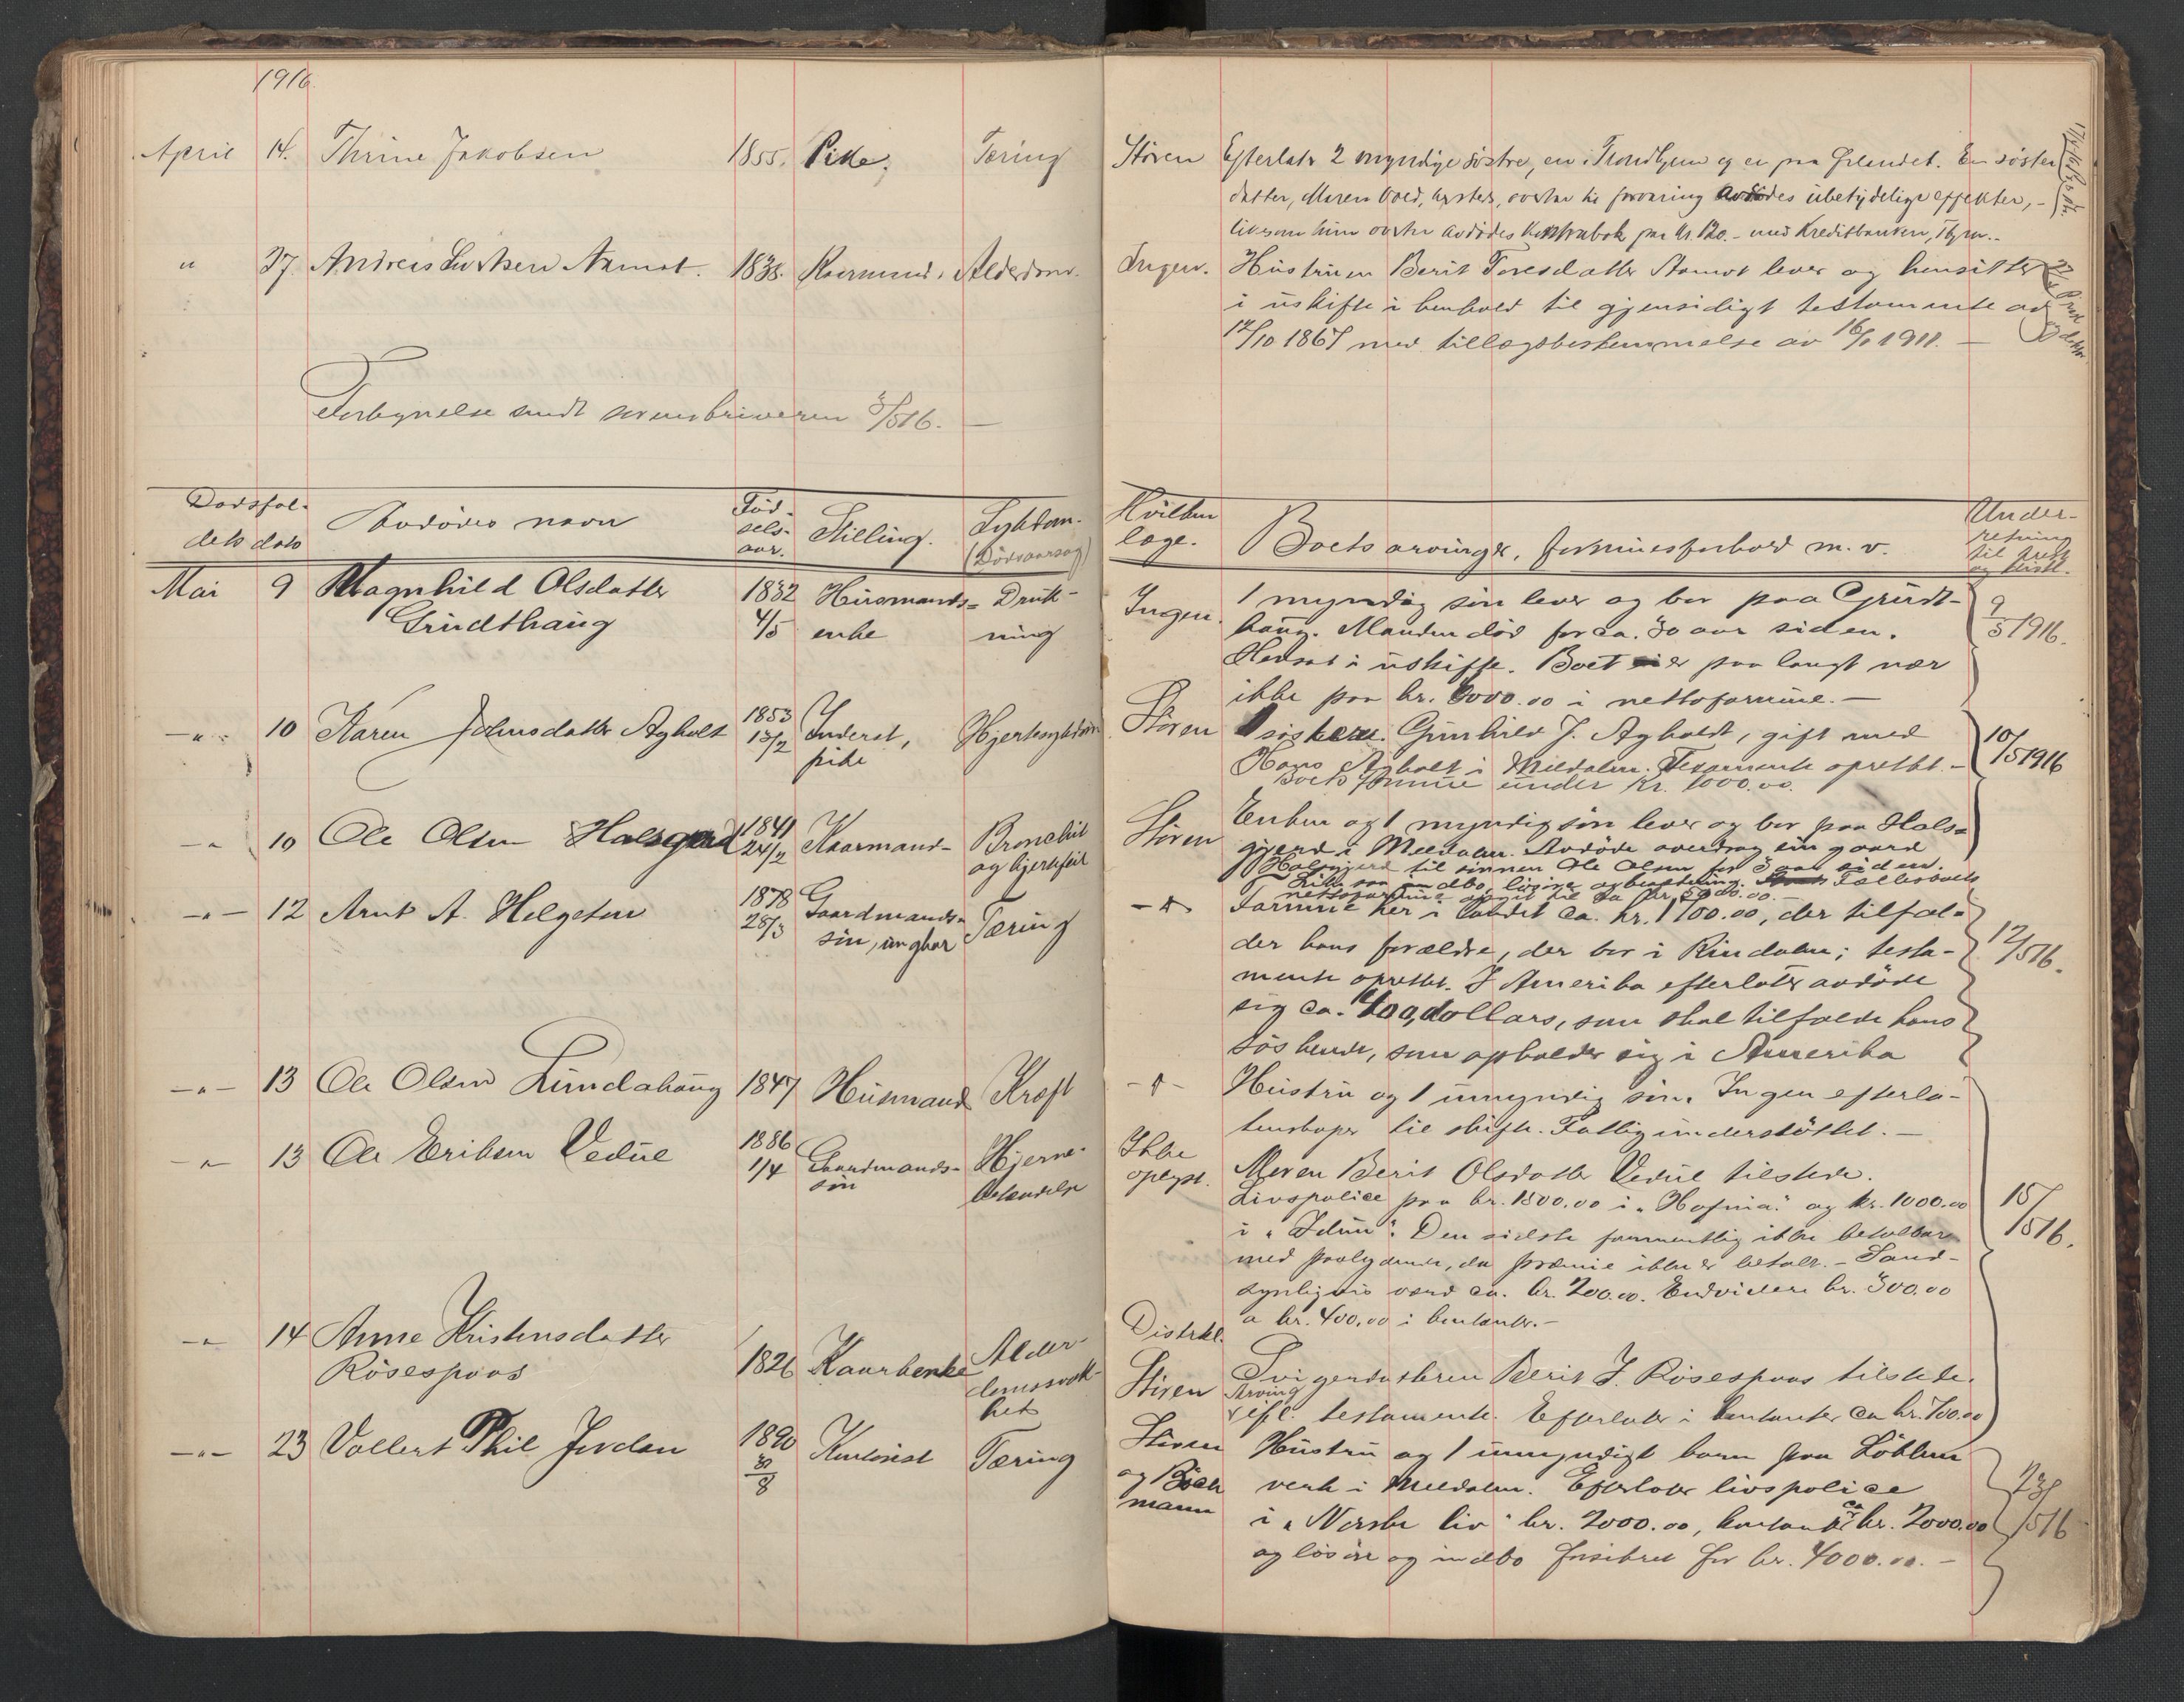 1916.
April 14. Thrine Jakobsen 1855. Pike. Tæring
" 27 Andreas Aamot. 1838. Kaarmand. Alderdom.
sendt 3/5 16. —
Dødsfal-
dets dato
Avdødes navn
Fød-
sels-
aar.
Stilling.
Sykdom.
(Dødsaarsag)
Mai 9 Magnhild Olsdatter 1832 Husmands- Druk-
Grudthaug 4/5 enke ning
—"— 10 Karen Johnsdatter Agholt 1853 13/2 Inderst, Hjertesykdom
pike
—"— 10 Ole Olsen Halsgjerd 1841 24/2 Kaarmand- Bronchit
og hjertefeil
—"— 12 Arnt A. Helgetun 1878 28/3 Gaardmands- Tæring
søn, ungkar
—"— 13 Ole Olsen Lundahaug 1847 Husmand Kræft
—"— 13 Ole Eriksen Vedul 1886 1/4 Gaardmands- Hjerne-
søn betændelse
—"— 14 Anne Kristensdatter
Røsespaas 1826 Kaarkenke Alder-
domssvak-
het
—"— 23 Vollert Phil Jordan 1890 Kontorist Tæring
Støren Efterlater 2 myndige søstre, en i Trondhjem og en paa Frlandet. En søster
datter, Maren overtar til forvaring avdødes ubetydelige effekter, -
likesom hun overtar avdødes kontrabok paa kr. 120.- med Kreditbanken,
Ingen. Hustruen Berit Toresdatter Aamot lever og hensitter
i uskifte i henhold til gjensidigt testamente av
12/10 1867 med tillægsbestemmelse av 16/ 1911. —
Hvilken
læge.
Boets arvinger, formuesforhold m. v.
Under-
retning
til
og
Ingen. 1 myndig søn lever og bor paa Grudt-
haug. Manden død for ca. 30 aar siden. 9/5 1916.
Hensat i uskifte. Boet er paa langt nær
ikke paa kr. 3000.00 i nettoformue. —
Støren 1 søsken. Gunhild J. Agholdt, gift med
Hans Agholt i Meldalen. Testamente oprettet. — 10/5 1916
Boets formue under kr. 1000.00.
Støren Enken og 1 myndig søn lever og bor paa Hals-
gjerd i Meldalen. Avdøde overdrog sin gaard
Halsgjerd til sønnen Ole Olsen for 3 aar siden.
indbo, løsøre og besætning. Fællesboets
nettoformue opgit til ca kr. 5000.00. —
—"— Formue her i landet ca. kr. 1100.00, der tilfal-
der hans forældre, der bor i Rindalen; testa- 12/5 16.
mente oprettet. I Amerika efterlater avdøde
sig ca. dollars, som skal tilfalde hans
søskende, som opholder sig i Amerika
—"— Hustru og 1 umyndig søn. Ingen efterla-
tenskaper til skifte. Fattigunderstøttet. —
Ikke
oplyst. Moren Berit Olsdatter Vedul tilstede.
Livspolice paa kr. 1500.00 i "Hafnia" og kr. 1000.00 15/5 16.
i "Idun". Den sidste formentlig ikke betalbar
med paalydende, da præmie ikke er betalt. — Sand-
synligvis værd ca. kr. 200.00. Endvidere kr. 300.00
a kr. 400.00 i kontanter. —
Distrktl.
Støren Svigerdatteren Berit J. Røsespaas tilstede.
Arving
ifl. testamente. Efterlater i kontanter ca kr. 700.00
Støren Hustru og 1 umyndigt barn paa Løkken
og Bach
mann verk i Meldalen. Efterlater livspolice 23/5 16
i "Norske liv" kr. 2000.00, kontant ca kr. 2000.00
og løsøre og indbo forsikret for kr. 4000.00. —